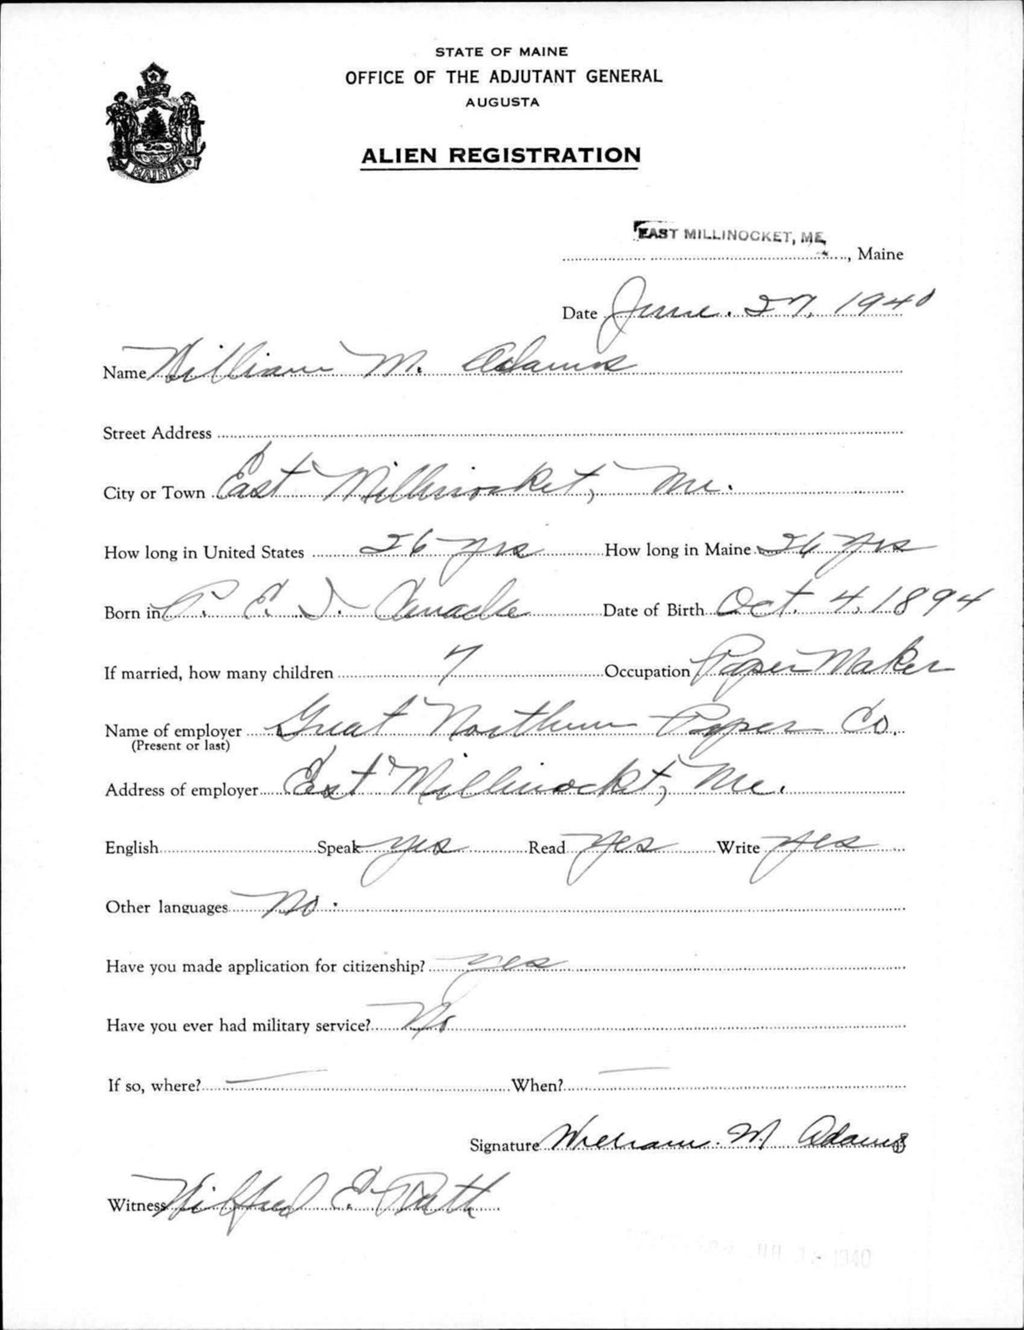 STATE OF MAINE
OFFICE OF THE ADJUTANT GENERAL
AUGUSTA
ALIEN REGISTRATION
MAINE
EAST MILLINOCKET, ME.
, Maine
Date June. 27, 1940
Name William M. Adams
Street Address
City or Town East Millinocket, Me.
How long in United States 26 yrs How long in Maine 26 yrs
Born in P. E. I. Canada Date of Birth Oct. 4, 1894
If married, how many children 7 Occupation Paper Maker
Name of employer Great Northern Paper Co.
(Present or last)
Address of employer East Millinocket, Me.
English Speak yes Read yes Write yes
Other languages No.
Have you made application for citizenship? yes
Have you ever had military service? No
If so, where? — When? —
Signature William. M Adams
Witness Wilfred E.
1940